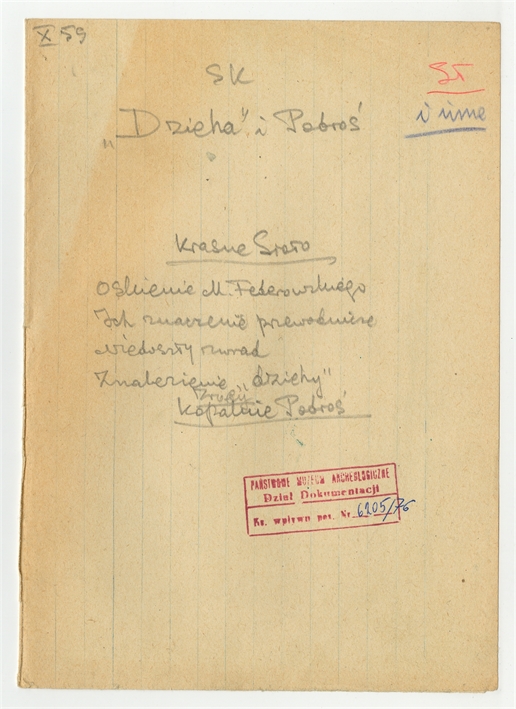 X 59
SK
SŁ
i inne
„Dzieha" i Pobroś
Krasne Sioło
Odkrycie M. Federowskiego
Ich znaczenie przewodnicze
Niedoszły zwiad
Znalezienie „dziehy"
Drogi
Kopalnie Pobroś
PAŃSTWOWE MUZEUM ARCHEOLOGICZNE
Dział Dokumentacji
Ks. wpływu poz. Nr. 6205/76